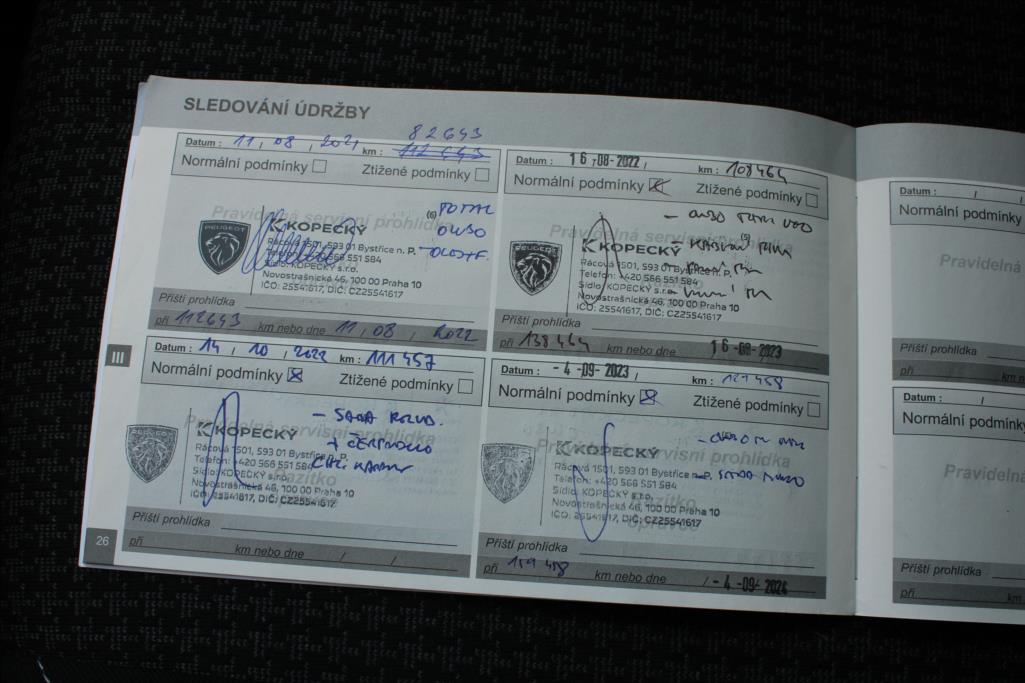 SLEDOVÁNÍ ÚDRŽBY
82643
Datum : 11, 08, 2021 km : 112 643
Normální podmínky Ztížené podmínky
Pravidelná servisní prohlídka
(6) TOTAL
PEUGEOT
KOPECKÝ
Rácová 1501, 593 01 Bystřice n. P.
Telefon: +420 566 551 584
Sídlo: KOPECKÝ s.r.o.
Novostrašnická 46, 100 00 Praha 10
IČO: 25541617, DIČ: CZ25541617
Příští prohlídka
při 112643 km nebo dne 11, 08, 2022
Datum : 16 -08- 2022 / km : 108464
Normální podmínky Ztížené podmínky
Pravidelná servisní prohlídka
(5)
PEUGEOT
KOPECKÝ
Rácová 1501, 593 01 Bystřice n. P.
Telefon: +420 566 551 584
Sídlo: KOPECKÝ s.r.o.
Novostrašnická 46, 100 00 Praha 10
IČO: 25541617, DIČ: CZ25541617
Příští prohlídka
při 138464 km nebo dne 16 -08- 2023
III
Datum : 14 / 10 / 2022 km : 111 457
Normální podmínky Ztížené podmínky
Pravidelná servisní prohlídka
- SADA ROZVD.
+ ČERPADLO
KOPECKÝ
Rácová 1501, 593 01 Bystřice n. P.
Telefon: +420 566 551 584
Sídlo: KOPECKÝ s.r.o.
Novostrašnická 46, 100 00 Praha 10
IČO: 25541617, DIČ: CZ25541617
Razítko
Příští prohlídka
při km nebo dne / /
Datum : - 4 -09- 2023 / km : 129458
Normální podmínky Ztížené podmínky
Pravidelná servisní prohlídka
KOPECKÝ
Rácová 1501, 593 01 Bystřice n. P.
Telefon: +420 566 551 584
Sídlo: KOPECKÝ s.r.o.
Novostrašnická 46, 100 00 Praha 10
IČO: 25541617, DIČ: CZ25541617
Razítko
opravce
Příští prohlídka
při 159 458 km nebo dne / - 4 -09- 2024
26
Datum : / /
Normální podmínky
Pravidelná
Příští prohlídka
při km
Datum : / /
Normální podmínky
Pravidelná
Příští prohlídka
při km